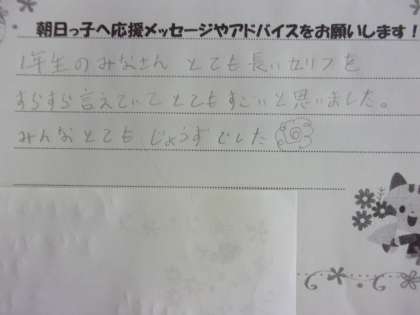 朝日っ子へ応援メッセージやアドバイスをお願いします!
1年生のみなさん とても長いセリフを
すらすら言えていてとてもすごいと思いました。
みんなとても じょうずでした